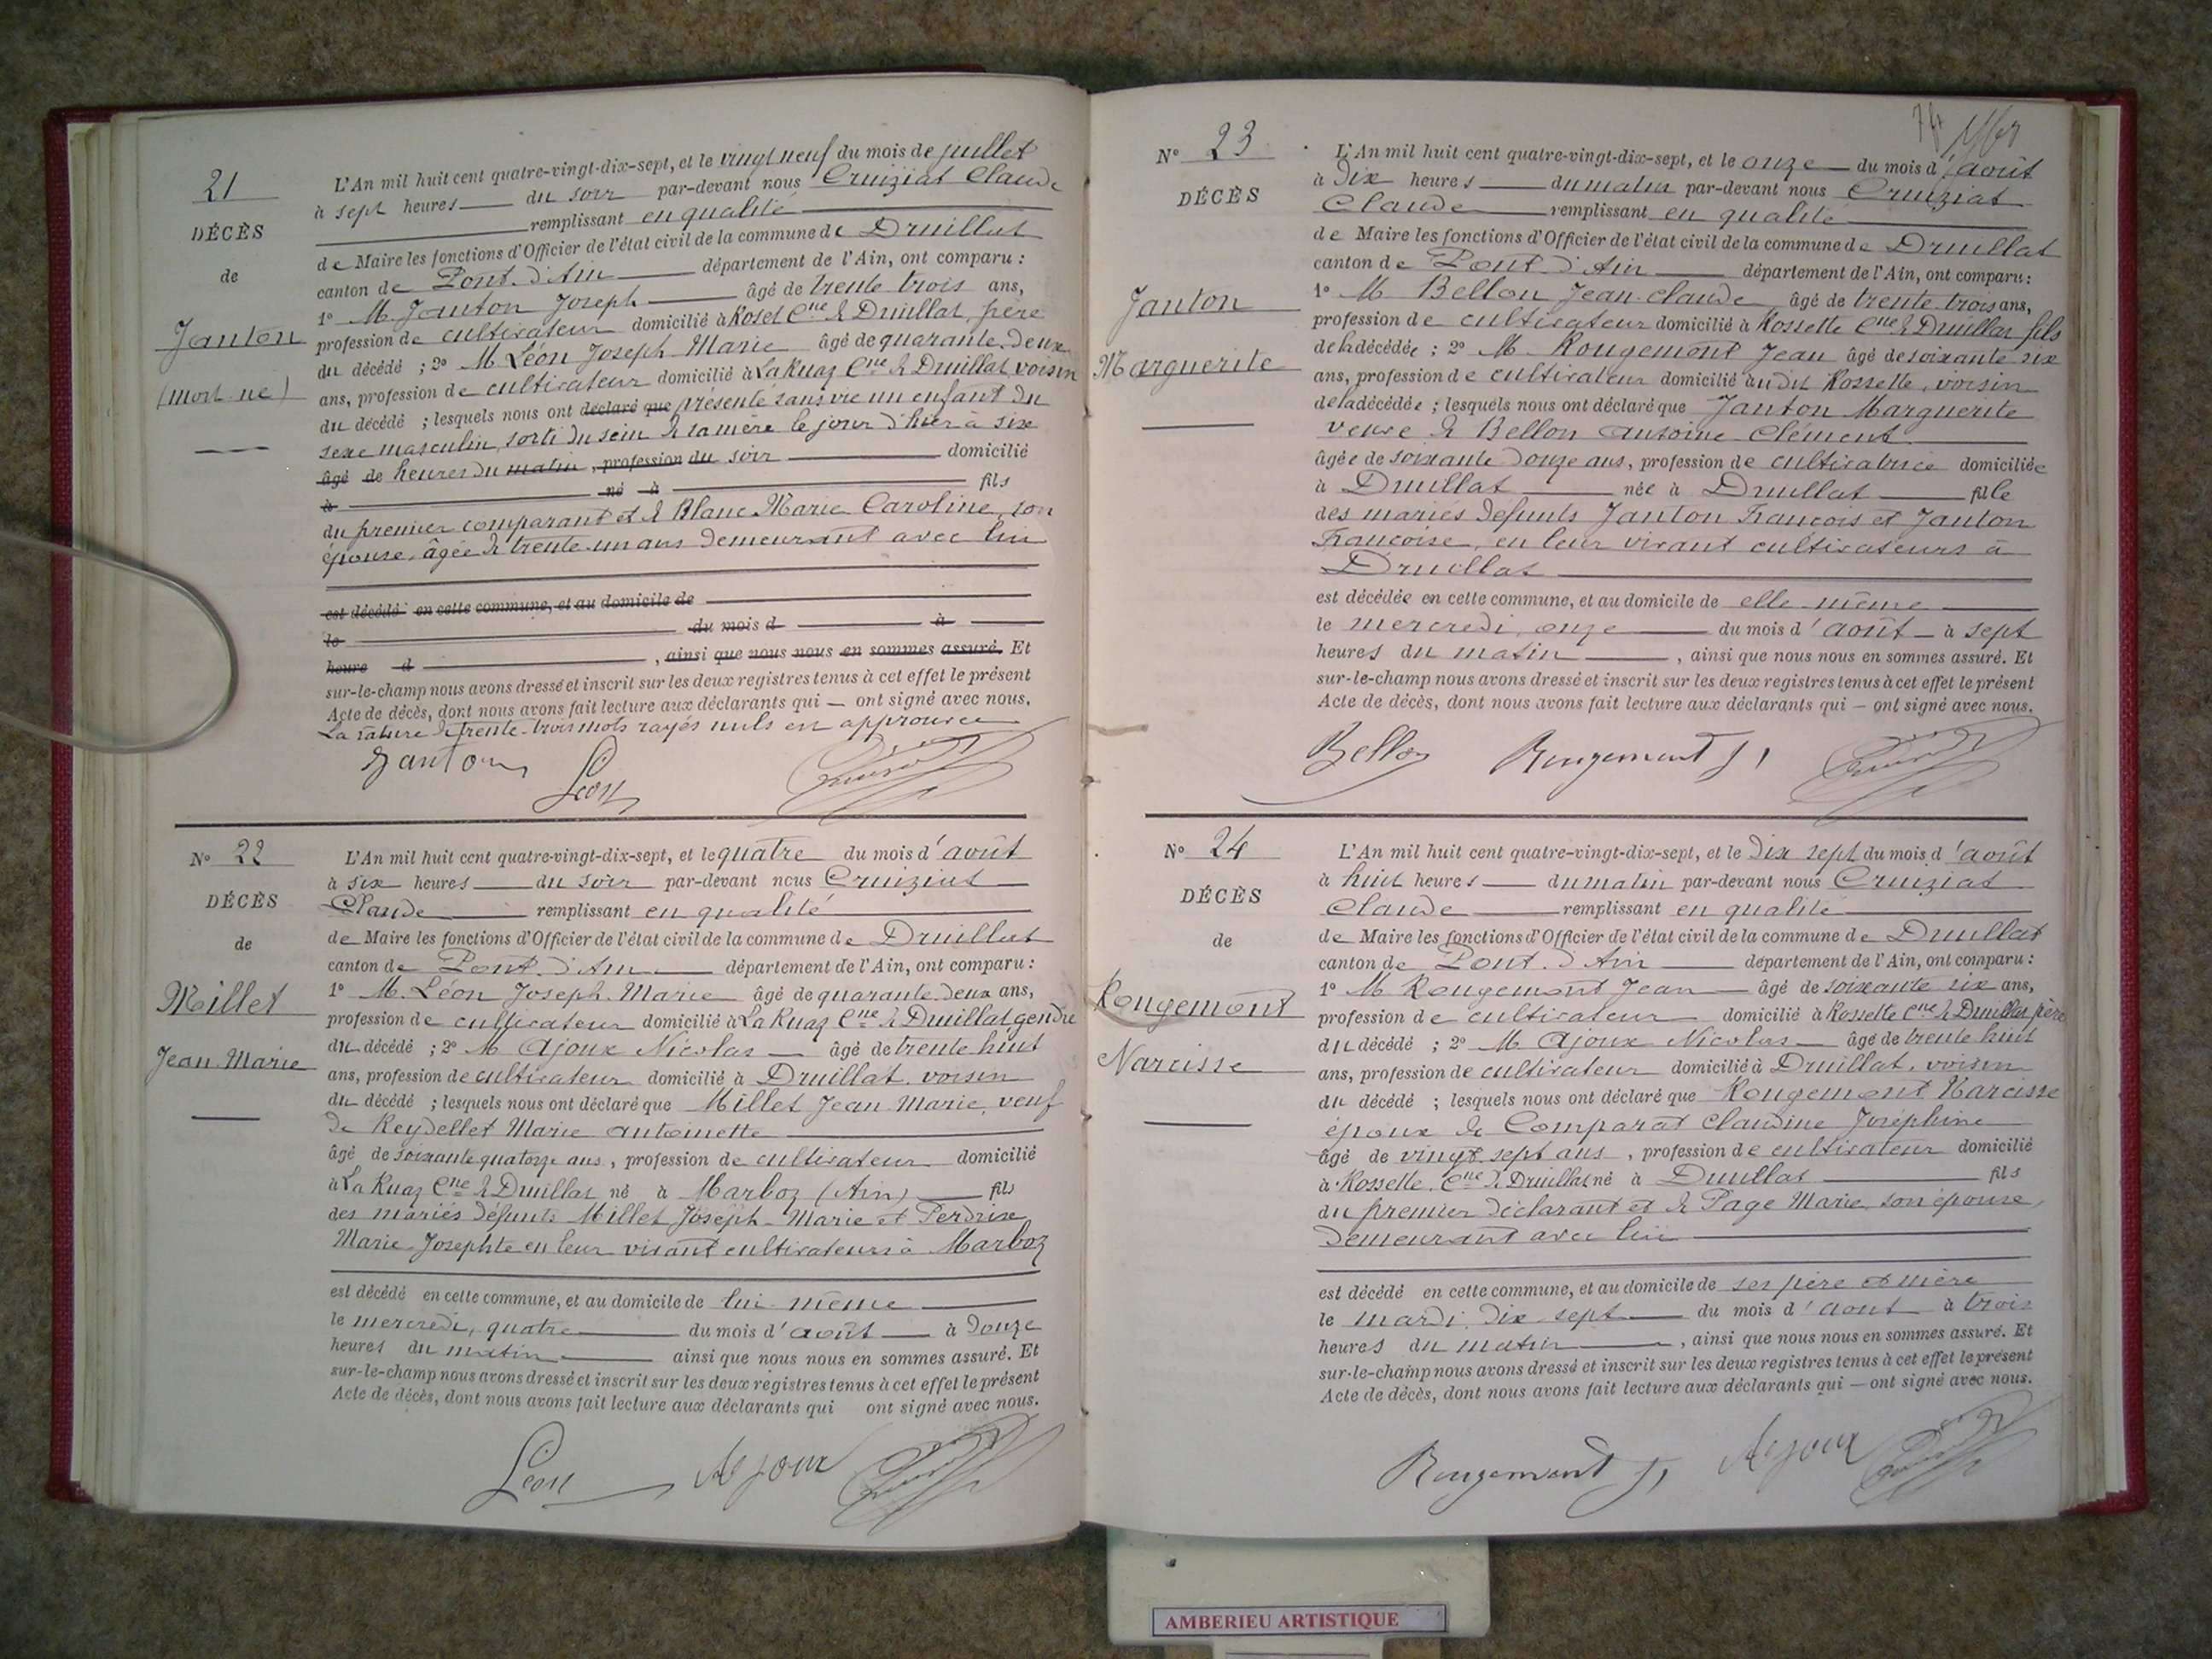 21
DÉCÈS
de
Janton
(mort-né)
L'An mil huit cent quatre-vingt-dix-sept, et le vingt neuf du mois de juillet
à sept heures du soir par-devant nous Cruiziat Claude
remplissant en qualité
de Maire les fonctions d'Officier de l'état civil de la commune de Druillat
canton de Pont-d'Ain département de l'Ain, ont comparu :
1° M. Janton Joseph âgé de trente trois ans,
profession de cultivateur domicilié à Roset Cne de Druillat, père
du décédé ; 2° M Léon Joseph Marie âgé de quarante-deux
ans, profession de cultivateur domicilié à La Ruaz Cne de Druillat voisin
du décédé ; lesquels nous ont déclaré que présenté sans vie un enfant du
sexe masculin, sorti du sein de sa mère le jour d'hier à six
âgé de heures du matin, profession du soir domicilié
à né à fils
du premier comparant et de Blanc Marie Caroline, son
épouse, âgée de trente-un ans demeurant avec lui
est décédé en cette commune, et au domicile de
le du mois d à
heure d , ainsi que nous nous en sommes assuré. Et
sur-le-champ nous avons dressé et inscrit sur les deux registres tenus à cet effet le présent
Acte de décès, dont nous avons fait lecture aux déclarants qui — ont signé avec nous.
La rature de trente-trois mots rayés nuls en approuvée
Janton
Léon
Cruiziat
N° 22
DÉCÈS
de
Millet
Jean-Marie
L'An mil huit cent quatre-vingt-dix-sept, et le quatre du mois d'août
à six heures du soir par-devant nous Cruiziat
Claude remplissant en qualité
de Maire les fonctions d'Officier de l'état civil de la commune de Druillat
canton de Pont-d'Ain département de l'Ain, ont comparu :
1° M. Léon Joseph-Marie âgé de quarante-deux ans,
profession de cultivateur domicilié à La Ruaz Cne de Druillat gendre
du décédé ; 2° M Ajoux Nicolas âgé de trente huit
ans, profession de cultivateur domicilié à Druillat, voisin
du décédé ; lesquels nous ont déclaré que Millet Jean-Marie, veuf
de Reydellet Marie Antoinette
âgé de soixante quatorze ans, profession de cultivateur domicilié
à La Ruaz Cne de Druillat né à Marboz (Ain) fils
des mariés défunts Millet Joseph-Marie et Perdrix
Marie-Josephte en leur vivant cultivateurs à Marboz
est décédé en cette commune, et au domicile de lui-même
le mercredi, quatre du mois d'août à douze
heures du matin ainsi que nous nous en sommes assuré. Et
sur-le-champ nous avons dressé et inscrit sur les deux registres tenus à cet effet le présent
Acte de décès, dont nous avons fait lecture aux déclarants qui ont signé avec nous.
Léon Ajoux Cruiziat
74
N° 23
DÉCÈS
Janton
Marguerite
L'An mil huit cent quatre-vingt-dix-sept, et le onze du mois d'août
à dix heures du matin par-devant nous Cruiziat
Claude remplissant en qualité
de Maire les fonctions d'Officier de l'état civil de la commune de Druillat
canton de Pont-d'Ain département de l'Ain, ont comparu :
1° M Bellon Jean-Claude âgé de trente-trois ans,
profession de cultivateur domicilié à Rossette Cne de Druillat fils
de la décédée ; 2° M. Rougemont Jean âgé de soixante six
ans, profession de cultivateur domicilié audit Rossette, voisin
de la décédée ; lesquels nous ont déclaré que Janton Marguerite
veuve de Bellon Antoine-Clément
âgée de soixante douze ans, profession de cultivatrice domiciliée
à Druillat née à Druillat fille
des mariés défunts Janton François et Janton
Françoise, en leur vivant cultivateurs à
Druillat
est décédée en cette commune, et au domicile de elle-même
le mercredi, onze du mois d'août à sept
heures du matin , ainsi que nous nous en sommes assuré. Et
sur-le-champ nous avons dressé et inscrit sur les deux registres tenus à cet effet le présent
Acte de décès, dont nous avons fait lecture aux déclarants qui — ont signé avec nous.
Bellon Rougemont J Cruiziat
N° 24
DÉCÈS
de
Rougemont
Narcisse
L'An mil huit cent quatre-vingt-dix-sept, et le dix sept du mois d'août
à huit heures du matin par-devant nous Cruiziat
Claude remplissant en qualité
de Maire les fonctions d'Officier de l'état civil de la commune de Druillat
canton de Pont-d'Ain département de l'Ain, ont comparu :
1° M Rougemont Jean âgé de soixante six ans,
profession de cultivateur domicilié à Rossette Cne de Druillat, père
du décédé ; 2° M Ajoux Nicolas âgé de trente huit
ans, profession de cultivateur domicilié à Druillat, voisin
du décédé ; lesquels nous ont déclaré que Rougemont Narcisse
époux de Comparat Claudine Joséphine
âgé de vingt-sept ans, profession de cultivateur domicilié
à Rossette, Cne de Druillat né à Druillat fils
du premier déclarant et de Page Marie, son épouse,
demeurant avec lui
est décédé en cette commune, et au domicile de ses père et mère
le mardi, dix-sept du mois d'août à trois
heures du matin , ainsi que nous nous en sommes assuré. Et
sur-le-champ nous avons dressé et inscrit sur les deux registres tenus à cet effet le présent
Acte de décès, dont nous avons fait lecture aux déclarants qui — ont signé avec nous.
Rougemont J Ajoux Cruiziat
AMBERIEU ARTISTIQUE